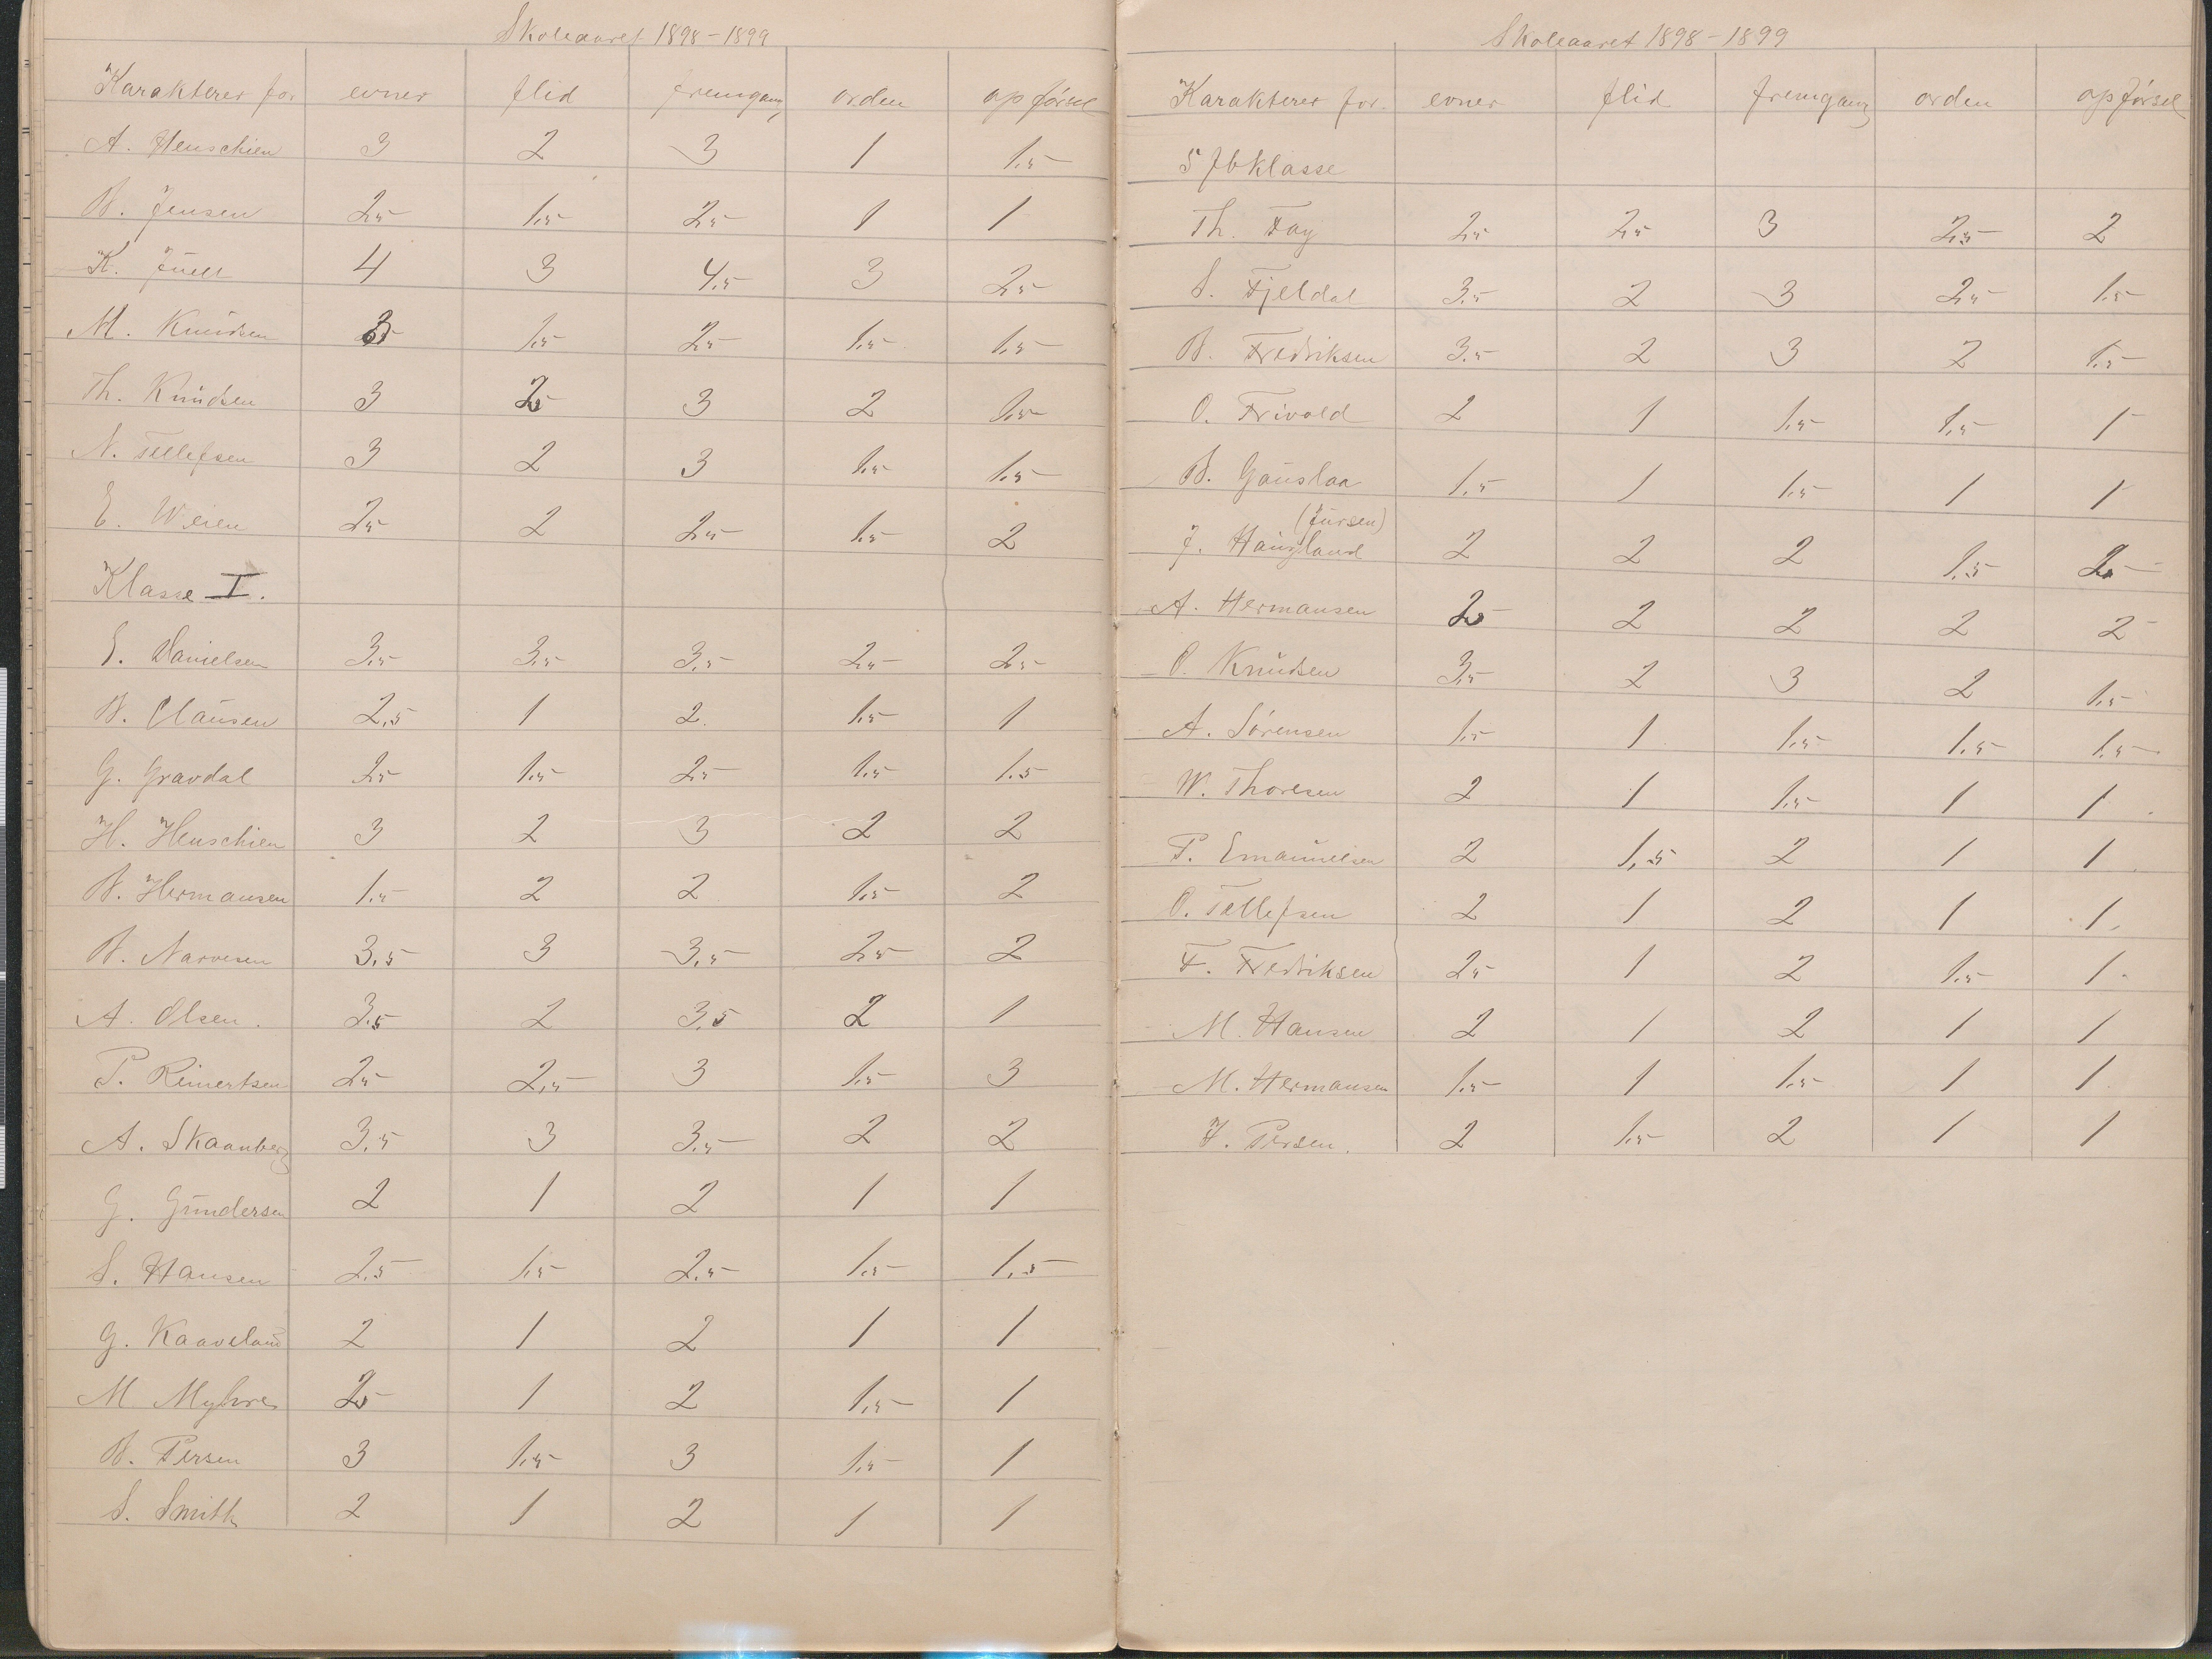 Skoleaaret 1898-1899
Karakterer for evner flid fremgang orden opførsel
A. Henschien 3 2 3 1 1.5
B. Jensen 2.5 1.5 2.5 1 1
K. Juell 4 3 4.5 3 2.5
M. Knudsen 1.5 2.5 1.5 1.5
Th. Knudsen 3 2.5 3 2 1.5
N. Tellefsen 3 2 3 1.5 1.5
E. Weien 2.5 2 2.5 1.5 2
Klasse I.
E. Danielsen 3.5 3.5 3.5 2.5 2.5
B. Clausen 2.5 1 2 1.5 1
G. Gravdal 2.5 1.5 2.5 1.5 1.5
H. Henschien 3 2 3 2 2
B. Hermansen 1.5 2 2 1.5 2
B. Narvesen 3.5 3 3.5 2.5 2
A. Olsen. 3.5 2 3.5 2 1
P. Reinertsen 2.5 2.5 3 1.5 3
A. Skaanberg 3.5 3 3.5 2 2
G. Gundersen 2 1 2 1 1
S. Hansen 2.5 1.5 2.5 1.5 1.5
G. Kaaveland 2 1 2 1 1
M Myhre 2.5 1 2 1.5 1
B. Persen 3 1.5 3 1.5 1
S. Smith 2 1 2 1 1
Skoleaaret 1898-1899
Karakterer for. evner flid fremgang orden opførsel
5 fbklasse
Th. Fay 2.5 2.5 3 2.5 2
S. Fjeldal 3.5 2 3 2.5 1.5
B. Fredriksen 3.5 2 3 2 1.5
O. Frivold 2 1 1.5 1.5 1
B. Gauslaa 1.5 1 1.5 1 1
(Jursen)
J. Haugland 2 2 2 1.5 2.5
A. Hermansen 2.5 2 2 2 2
O. Knudsen 3.5 2 3 2 1.5
A. Sørensen 1.5 1 1.5 1.5 1.5
W. Thoresen 2 1 1.5 1 1
P. Emanuelsen 2 1.5 2 1 1
O. Tellefsen 2 1 2 1 1
F. Fredriksen 2.5 1 2 1.5 1
M. Hansen 2 1 2 1 1
M. Hermansen 1.5 1 1.5 1 1
Persen. 2 1.5 2 1 1